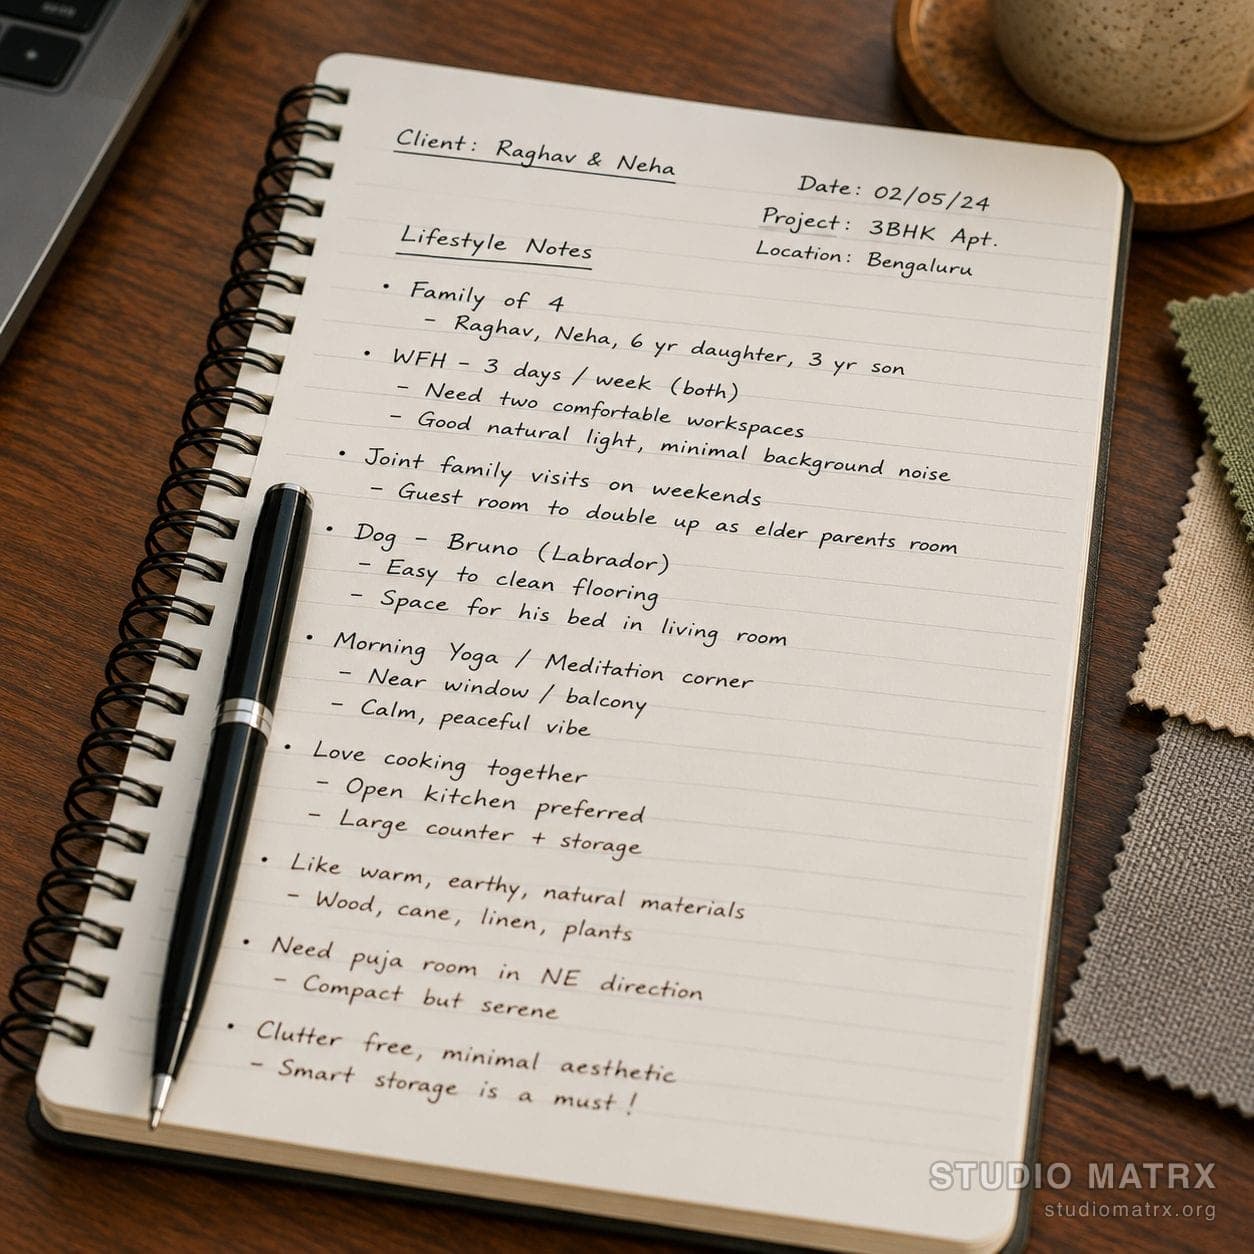 Client: Raghav & Neha
Date: 02/05/24
Project: 3BHK Apt.
Location: Bengaluru
Lifestyle Notes
• Family of 4
– Raghav, Neha, 6 yr daughter, 3 yr son
• WFH – 3 days / week (both)
– Need two comfortable workspaces
– Good natural light, minimal background noise
• Joint family visits on weekends
– Guest room to double up as elder parents room
• Dog – Bruno (Labrador)
– Easy to clean flooring
– Space for his bed in living room
• Morning Yoga / Meditation corner
– Near window / balcony
– Calm, peaceful vibe
• Love cooking together
– Open kitchen preferred
– Large counter + storage
• Like warm, earthy, natural materials
– Wood, cane, linen, plants
• Need puja room in NE direction
– Compact but serene
• Clutter free, minimal aesthetic
– Smart storage is a must!
STUDIO MATRX
studiomatrx.org